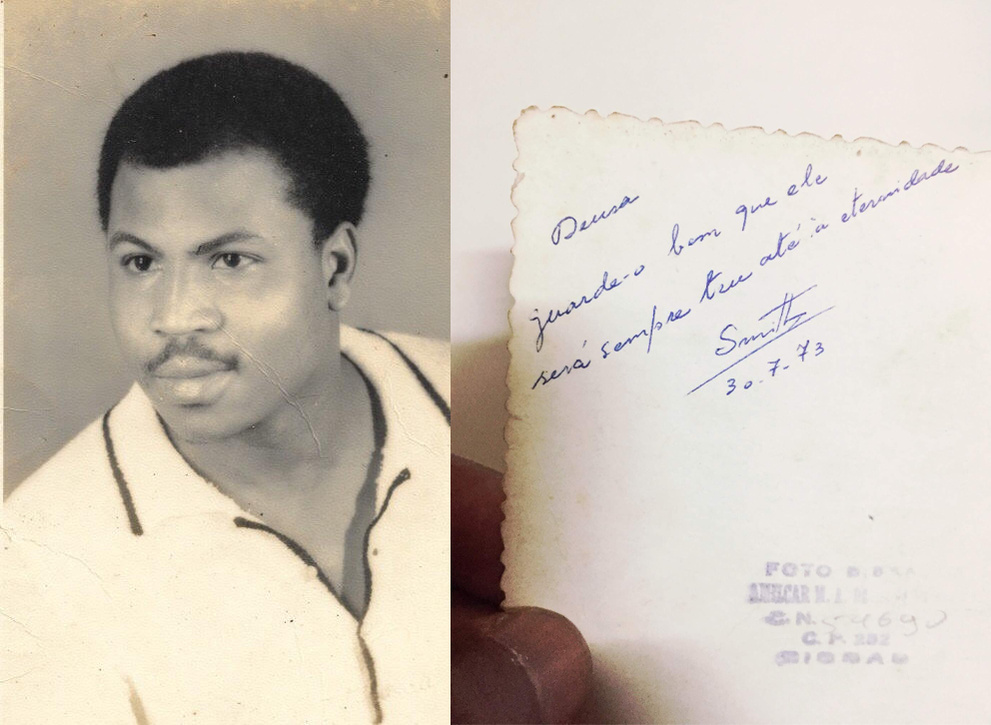 Deusa
guarde-o bem que ele
será sempre teu até à eternidade
Smith
30.7-73
FOTO
C. P. 292
BISSAU